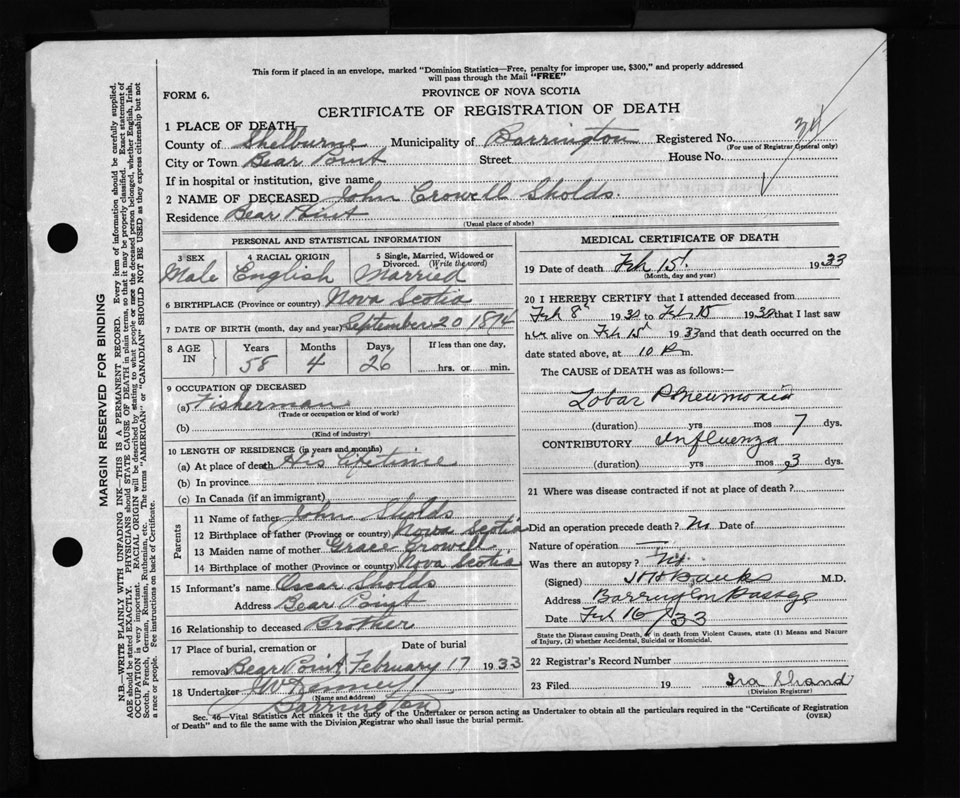 This form if placed in an envelope, marked "Dominion Statistics—Free, penalty for improper use, $300," and properly addressed
will pass through the Mail "FREE"
FORM 6.
PROVINCE OF NOVA SCOTIA
CERTIFICATE OF REGISTRATION OF DEATH
34
1 PLACE OF DEATH—
County of Shelburne Municipality of Barrington Registered No.
(For use of Registrar General only)
City or Town Bear Point Street House No.
If in hospital or institution, give name
2 NAME OF DECEASED John Crowell Sholds.
Residence Bear Point
(Usual place of abode)
PERSONAL AND STATISTICAL INFORMATION
3 SEX 4 RACIAL ORIGIN 5 Single, Married, Widowed or
Divorced. (Write the word)
Male English Married
6 BIRTHPLACE (Province or country) Nova Scotia
7 DATE OF BIRTH (month, day and year) September 20 1874
8 AGE IN Years Months Days If less than one day,
58 4 26 hrs. or min.
9 OCCUPATION OF DECEASED
(a) Fisherman
(Trade or occupation or kind of work)
(b)
(Kind of industry)
10 LENGTH OF RESIDENCE (in years and months)
(a) At place of death His Lifetime
(b) In province
(c) In Canada (if an immigrant)
Parents
11 Name of father John Sholds
12 Birthplace of father (Province or country) Nova Scotia
13 Maiden name of mother Grace Crowell
14 Birthplace of mother (Province or country) Nova Scotia
15 Informant's name Oscar Sholds
Address Bear Point
16 Relationship to deceased Brother
17 Place of burial, cremation or Date of burial
removal Bear Point February 17 1933
18 Undertaker
(Name and address)
Barrington
MEDICAL CERTIFICATE OF DEATH
19 Date of death Feb 15 1933
(Month, day and year)
20 I HEREBY CERTIFY that I attended deceased from
Feb 8 19 to Feb 15 19 that I last saw
h alive on Feb 15 1933 and that death occurred on the
date stated above, at 10 P m.
The CAUSE of DEATH was as follows:—
Lobar Pneumonia
(duration) yrs mos 7 dys.
CONTRIBUTORY Influenza
(duration) yrs mos 3 dys.
21 Where was disease contracted if not at place of death?
Did an operation precede death? No Date of
Nature of operation —
Was there an autopsy?
(Signed) Banks M.D.
Address Barrington Passage
Date Feb 16/33
State the Disease causing Death, if death from Violent Causes, state (1) Means and Nature
of Injury, (2) whether Accidental, Suicidal or Homicidal.
22 Registrar's Record Number
23 Filed 19 Ira Shand
(Division Registrar)
Sec. 46—Vital Statistics Act makes it the duty of the Undertaker or person acting as Undertaker to obtain all the particulars required in the "Certificate of Registration
of Death" and to file the same with the Division Registrar who shall issue the burial permit.
(OVER)
MARGIN RESERVED FOR BINDING
N.B.—WRITE PLAINLY WITH UNFADING INK—THIS IS A PERMANENT RECORD. Every item of information should be carefully supplied.
AGE should be stated EXACTLY. PHYSICIANS should STATE CAUSE OF DEATH in plain terms, so that it may be properly classified. Exact statement of
OCCUPATION is very important. RACIAL ORIGIN will be described by stating to what people or race the deceased person belonged, whether English, Irish,
Scotch, French, German, Russian, Ruthenian, etc. The terms "AMERICAN" or "CANADIAN" SHOULD NOT BE USED as they express citizenship but not
a race or people. See instructions on back of Certificate.